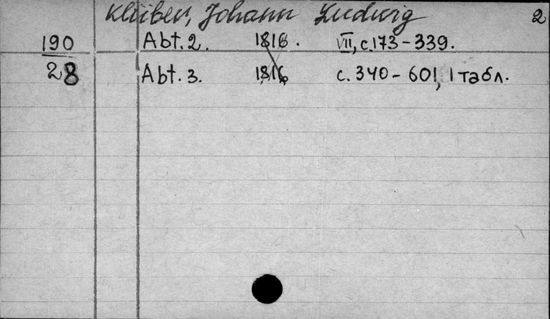 Klüber, Johann Ludwig 2
190 Abt. 2. 1816. VII, с. 173-339.
28 Abt. 3. 1816 с. 340-601, 1 табл.